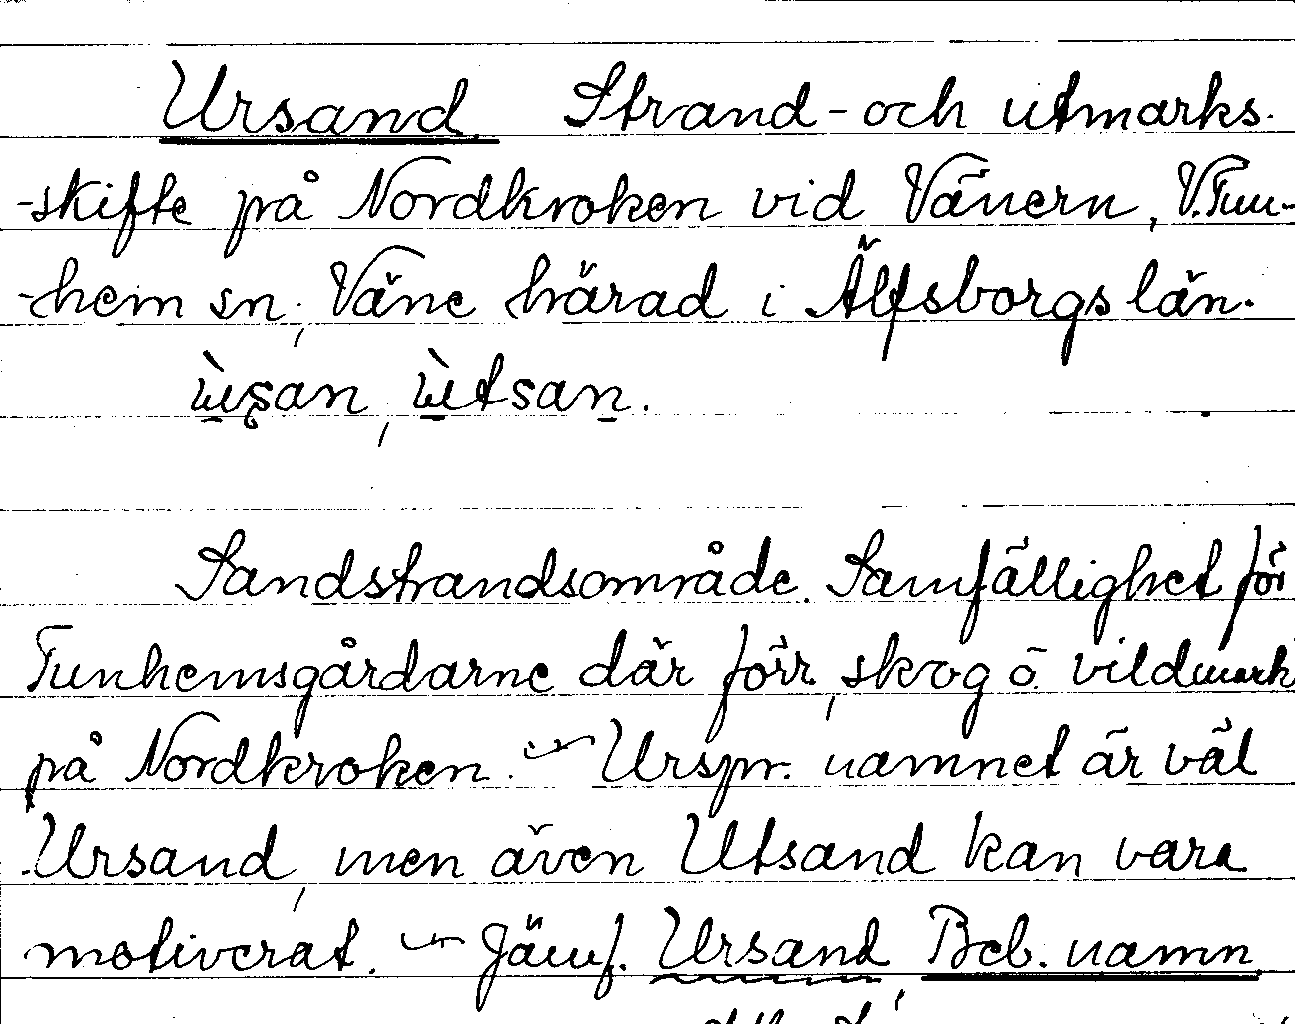 Ursand. Strand- och utmarks-
-skifte på Nordkroken vid Vänern, V. Tun-
-hem sn, Väne härad i Älfsborgs län.
Sandstrandsområde. Samfällighet för
Tunhemsgårdarne där förr, skog o. vildmark
på Nordkroken. — Urspr. namnet är väl
Ursand, men även Utsand kan vara
motiverat. — Jämf. Ursand, Beb. namn